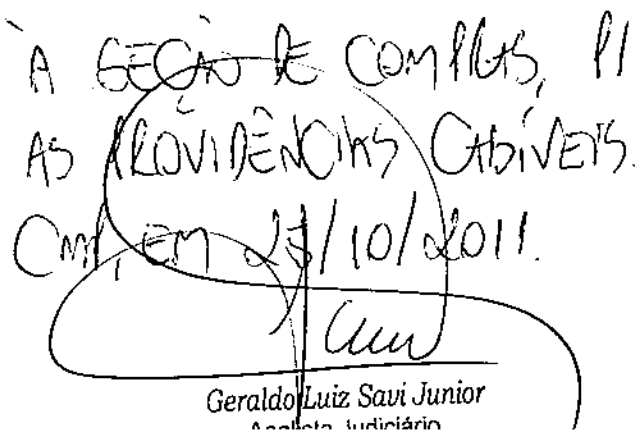 À SEÇÃO DE COMPRAS, P/
AS PROVIDÊNCIAS CABÍVEIS.
EM 25/10/2011.
Geraldo Luiz Savi Junior
Analista Judiciário